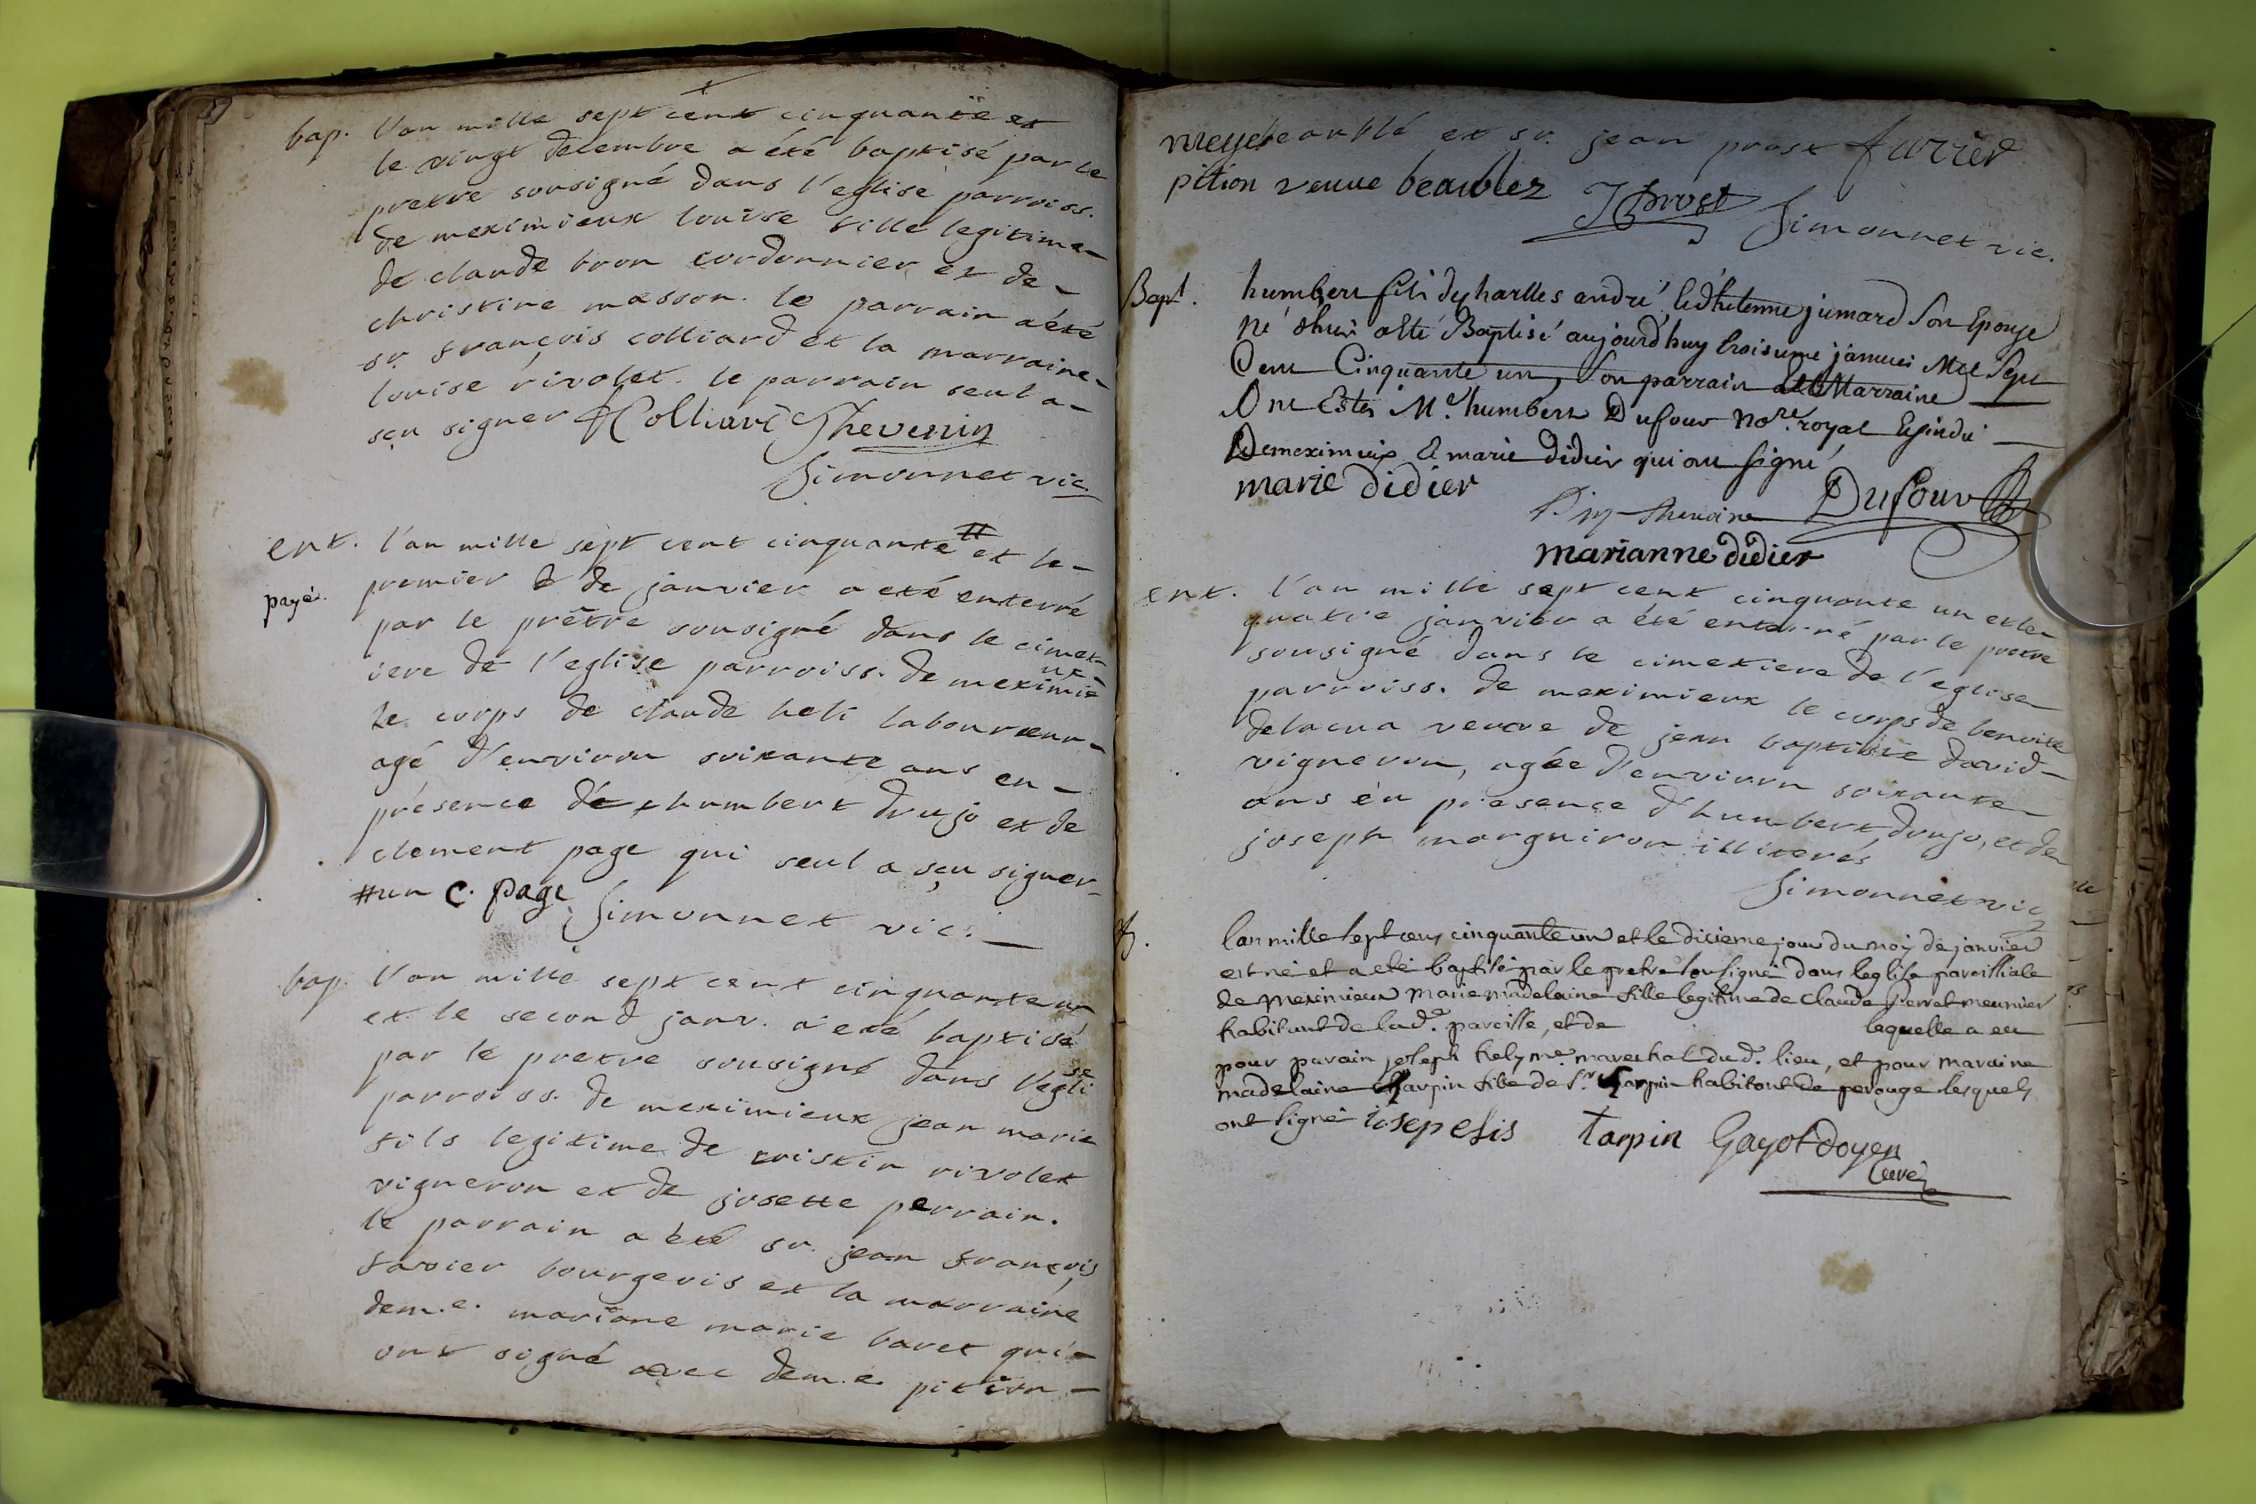 bap. l'an mille sept cent cinquante et
le vingt decembre a été baptisé par le
pretre sousigné dans l'eglise parroiss.
de meximieux louise fille legitime
de claude bron cordonnier et de
christine masson. le parrain a été
sr. françois colliard et la marraine
louise rivolet. le parrain seul a
sçu signer Colliard Thevenin
Simonnet vic.
ent. l'an mille sept cent cinquante # et le
payé. premier de janvier a été enterré
par le prêtre sousigné dans le cimet
iere de l'eglise parroiss. de meximie
ux
le corps de claude heli laboureur
agé d'environ soixante ans en
présence de humbert drujo et de
clement page qui seul a sçu signer
#un C. page Simonnet vic.
bap. l'an mille sept cent cinquante un
et le second janv. a été baptisé
par le pretre sousigné dans l'egli
se
parroiss. de meximieux jean marie
fils legitime de cristin rivolet
vigneron et de josette perrain.
le parrain a été sr. jean françois
favier bourgeois et la marraine
dem.e. mariane marie baret qui
ont signé avec dem.e. pition
beaublé et sr. jean prost favier
pition veuve beaublez
JProst
Simonnet vic.
Bapt. humbert fils de charlles andré et d'hetienne jumard son epouse
né d'hier a été Baptisé aujourd'huy troisieme janvier Mil Sept
Cent Cinquante un, Son parrain et Marraine
Ont Estés Me. humbert Dufour nore. royal et sindic
Demeximieux & marie didier qui ont signé
marie didier
Dufour
marianne didier
ent. l'an mille sept cent cinquante un et le
quatre janvier a été enterré par le pretre
sousigné dans le cimetiere de l'eglise
parroiss. de meximieux le corps de benoite
delacua veuve de jean baptiste david
vigneron, agée d'environ soixante
ans en presence d'humbert drujo, et de
joseph marguiron illiterés
Simonnet vic
B. lan mille sept cens cinquante un et le dicieme jour du moy de janvier
est né et a eté baptisé par le pretre sousigné dans leglise paroissiale
de Meximieux Marie madelaine fille legitime de Claude Perret meunier
habitant de lad.e paroisse, et de lequelle a eu
pour parain joseph hely me. marechal du d. lieu, et pour maraine
madelaine tarpin fille de sr. tarpin habitant de perouge lesquels
ont signé iosep elis tarpin Gayot doyen
Curé